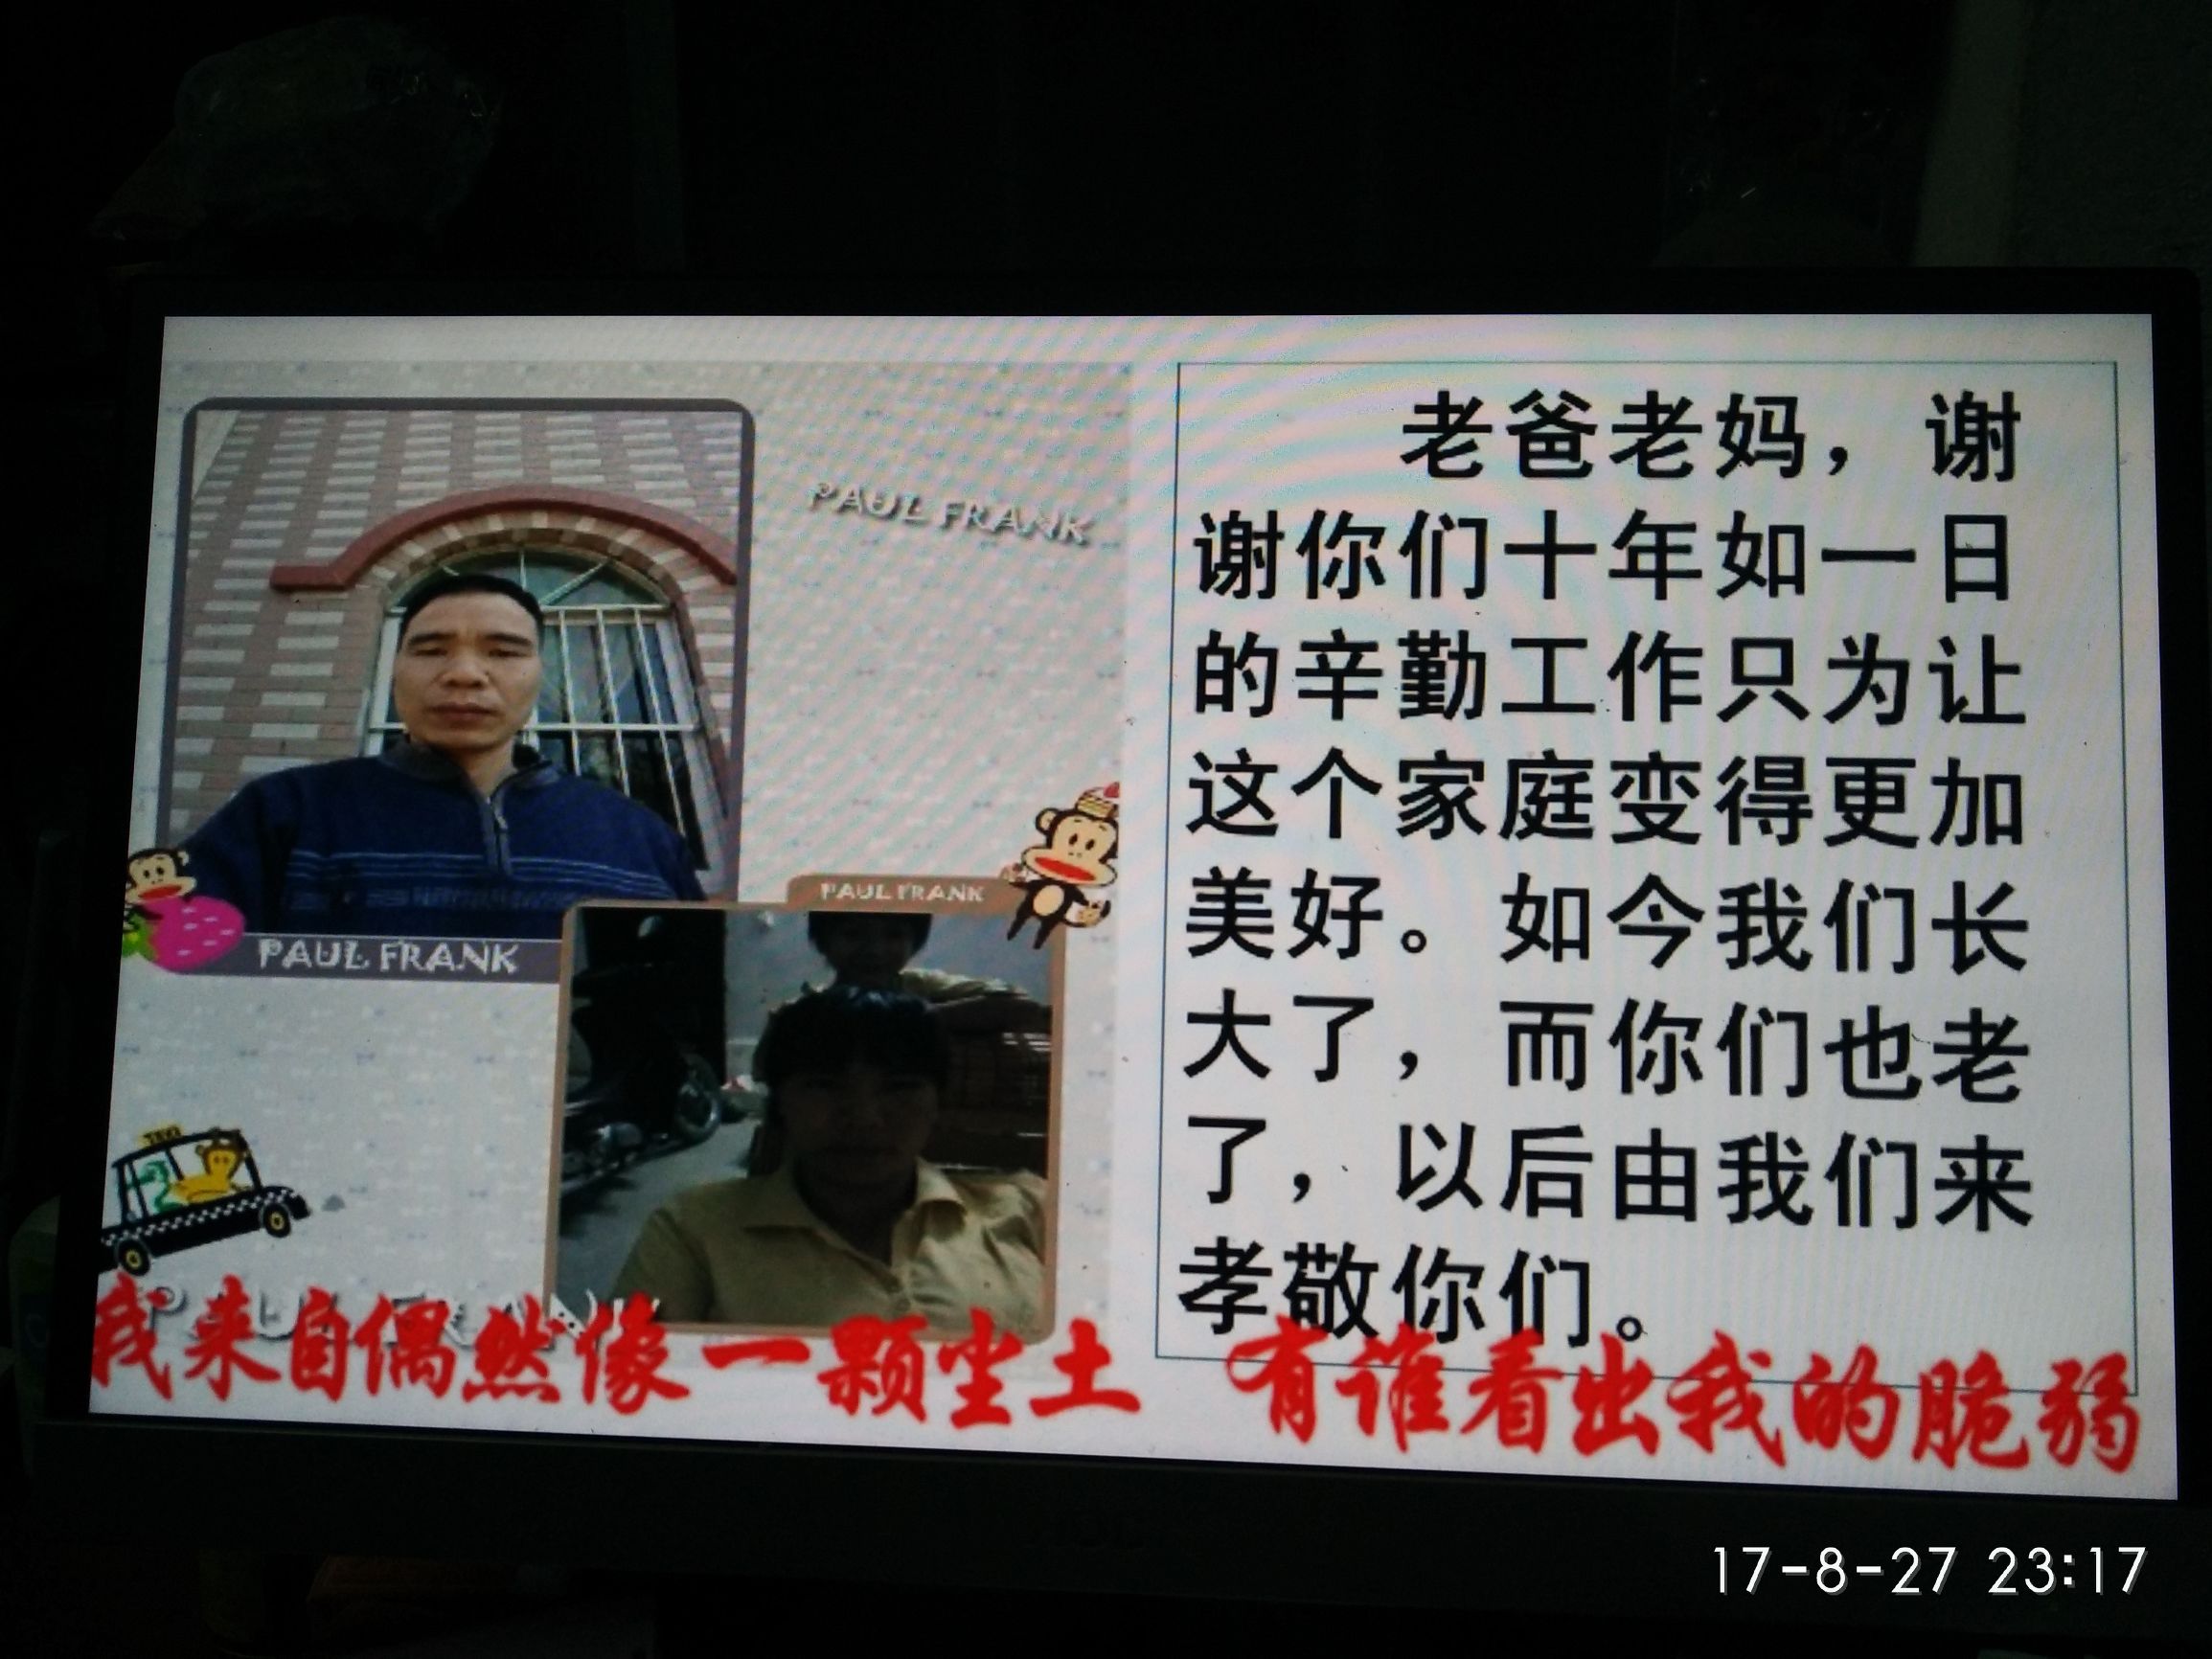 PAUL FRANK
PAUL FRANK
PAUL FRANK
TAXI
PAUL FRANK
老爸老妈，谢
谢你们十年如一日
的辛勤工作只为让
这个家庭变得更加
美好。如今我们长
大了，而你们也老
了，以后由我们来
孝敬你们。
我来自偶然像一颗尘土 有谁看出我的脆弱
17-8-27 23:17